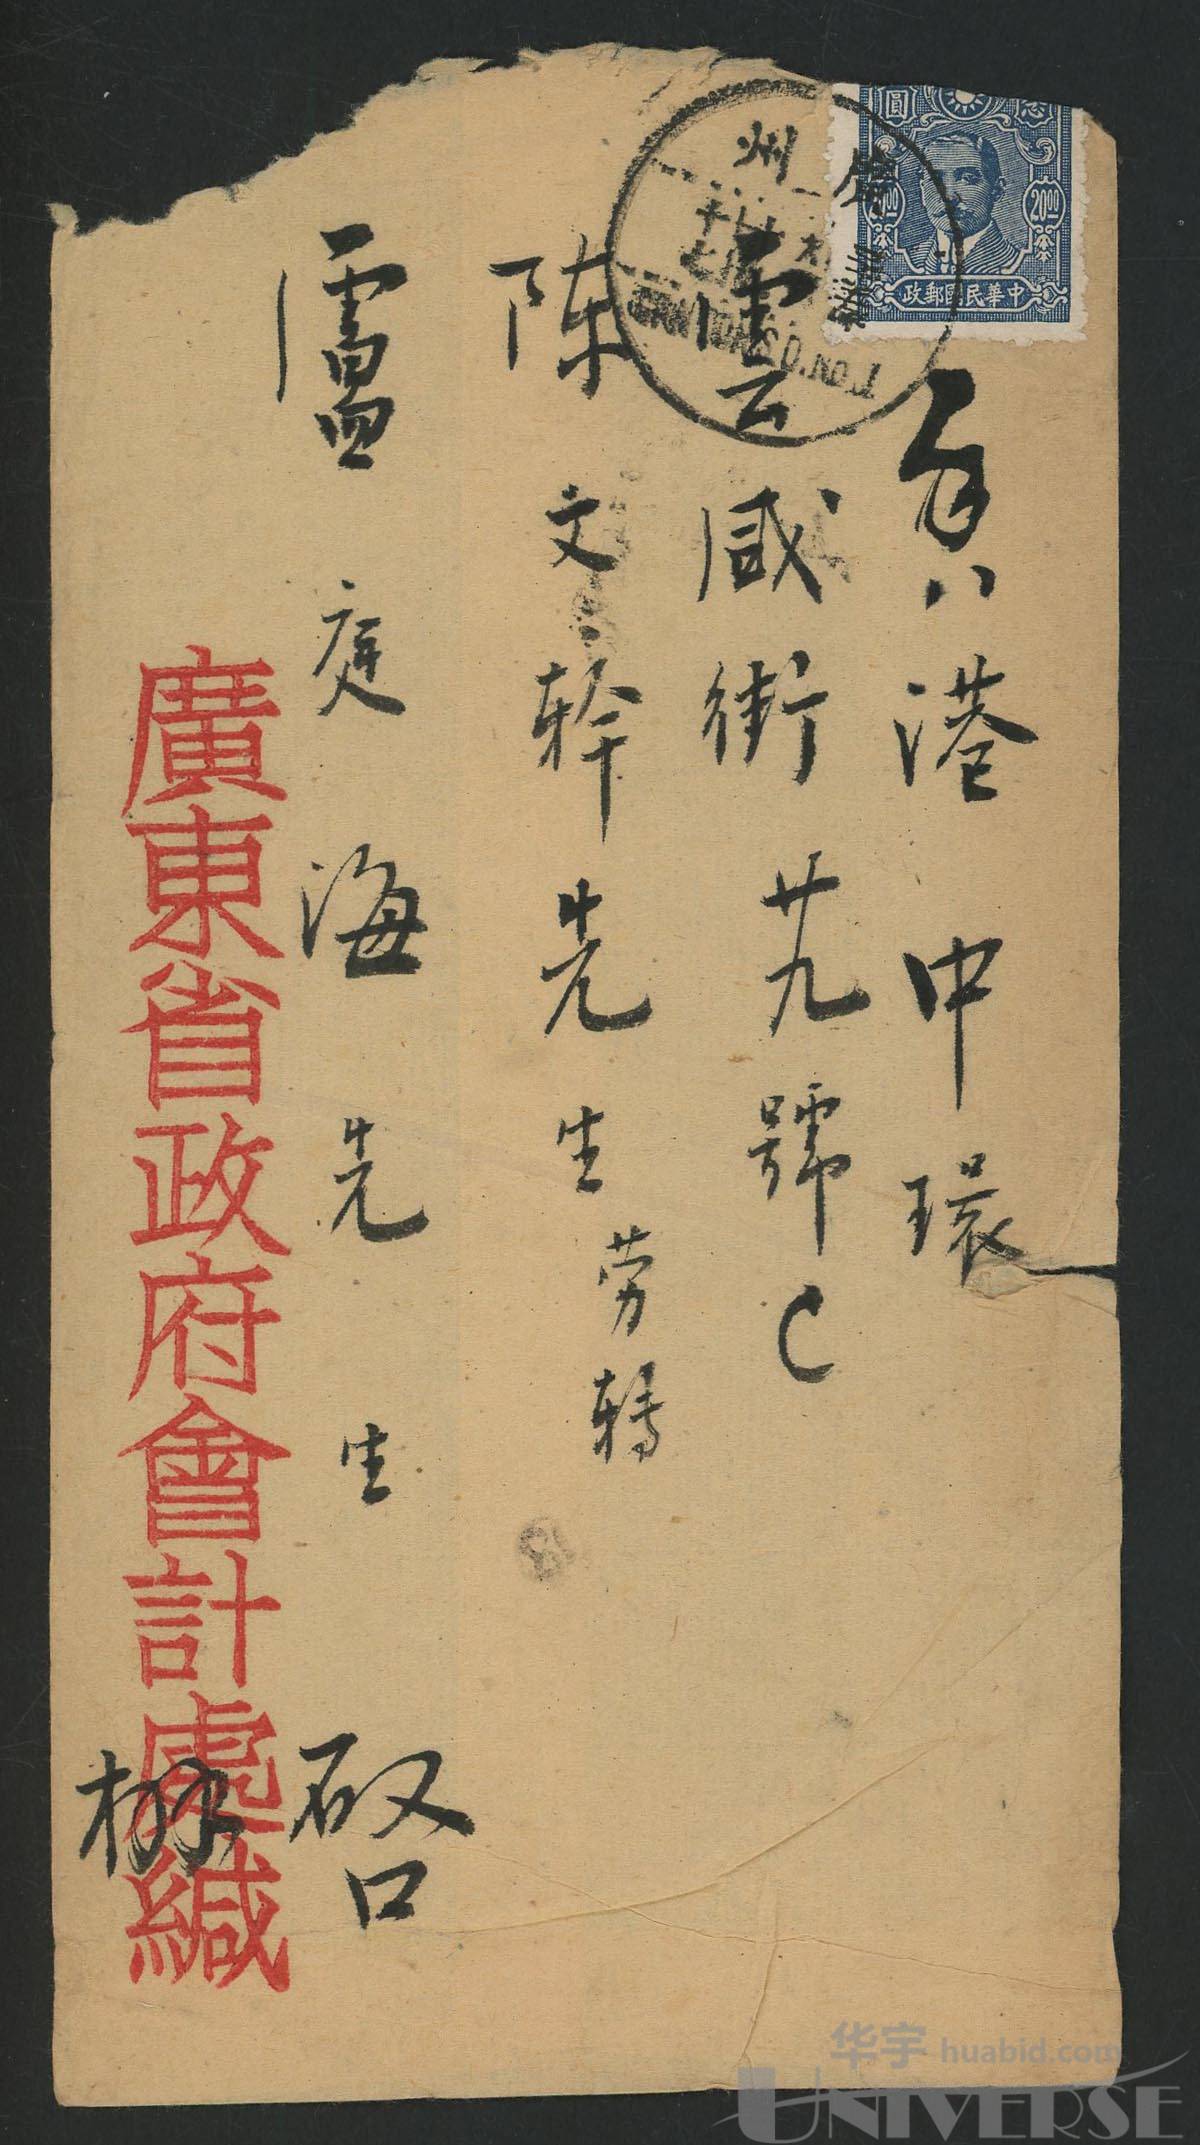 香港中環
雲咸街廿九號
陈文幹先生 劳轉
盧庭海先生 啟
廣東省政府會計處緘
圓
20.00
20.00
政郵國民華中
州廣
華宇 huabid.com
UNIVERSE